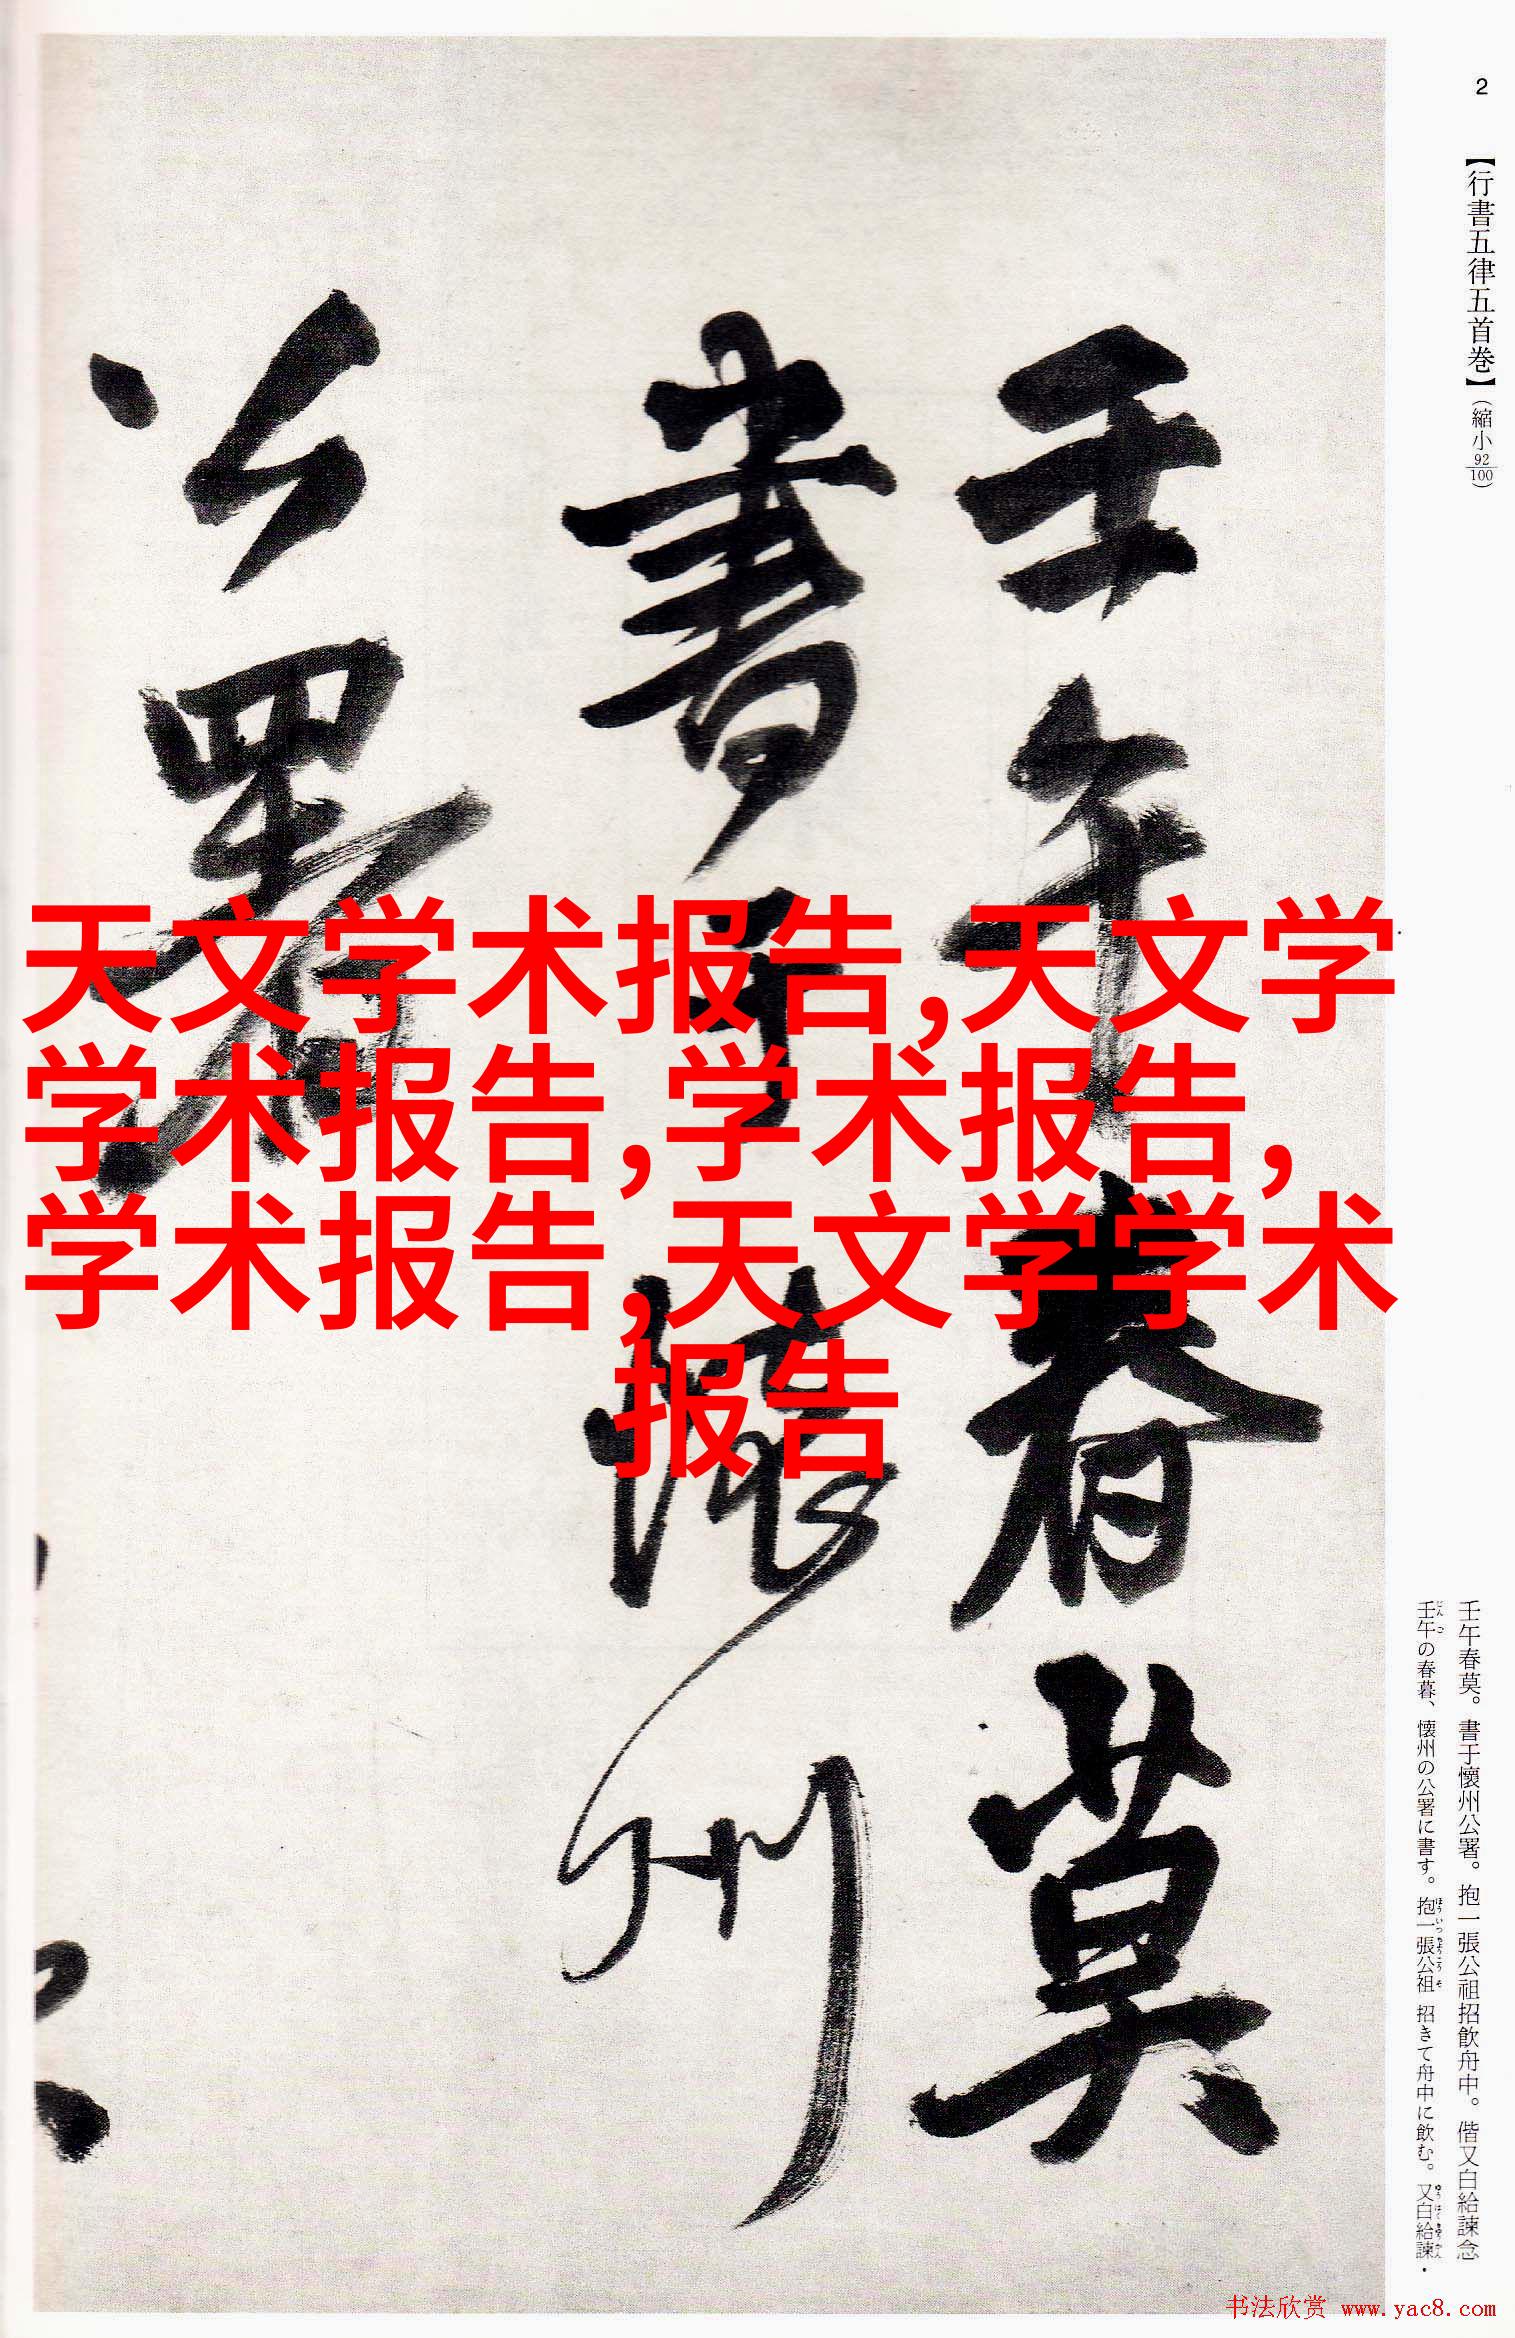 2
【行書五律五首巻】（縮小92/100）
壬午春莫
書于懷州
公署
天文学术报告,天文学
学术报告,学术报告,
学术报告,天文学学术
报告
壬午春莫。書于懷州公署。抱一張公祖招飲舟中。偕又白給諫念
壬午の春暮、懐州の公署に書す。抱一張公祖 招きて舟中に飲む。又白給諫・
书法欣赏 www.yac8.com